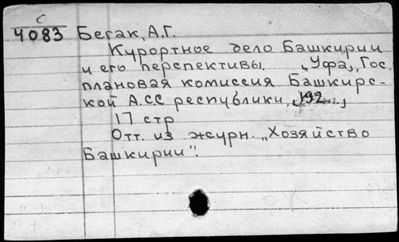 С
4083 Бегак, А.Г.
Курортное дело Башкирии
и его перспективы. „Уфа„, Гос.
плановая комиссия Башкирс-
кой А.СС республики, 192...,
17 стр
Отт. из журн. „Хозяйство
Башкирии".